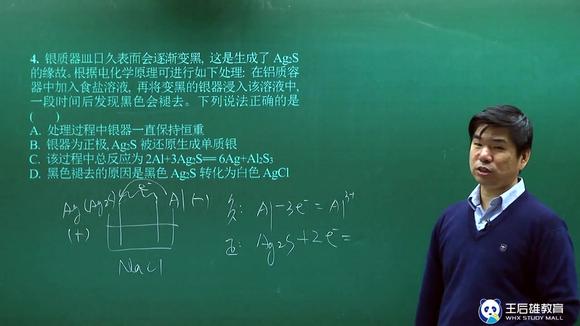 4. 银质器皿日久表面会逐渐变黑, 这是生成了 Ag₂S
的缘故。根据电化学原理可进行如下处理: 在铝质容
器中加入食盐溶液, 再将变黑的银器浸入该溶液中,
一段时间后发现黑色会褪去。下列说法正确的是
( )
A. 处理过程中银器一直保持恒重
B. 银器为正极, Ag₂S 被还原生成单质银
C. 该过程中总反应为 2Al+3Ag₂S══6Ag+Al₂S₃
D. 黑色褪去的原因是黑色 Ag₂S 转化为白色 AgCl
Ag(Ag₂S) e⁻ Al (−)
(+)
NaCl
负: Al−3e⁻=Al³⁺
正: Ag₂S+2e⁻=
王后雄教育
WHX STUDY MALL